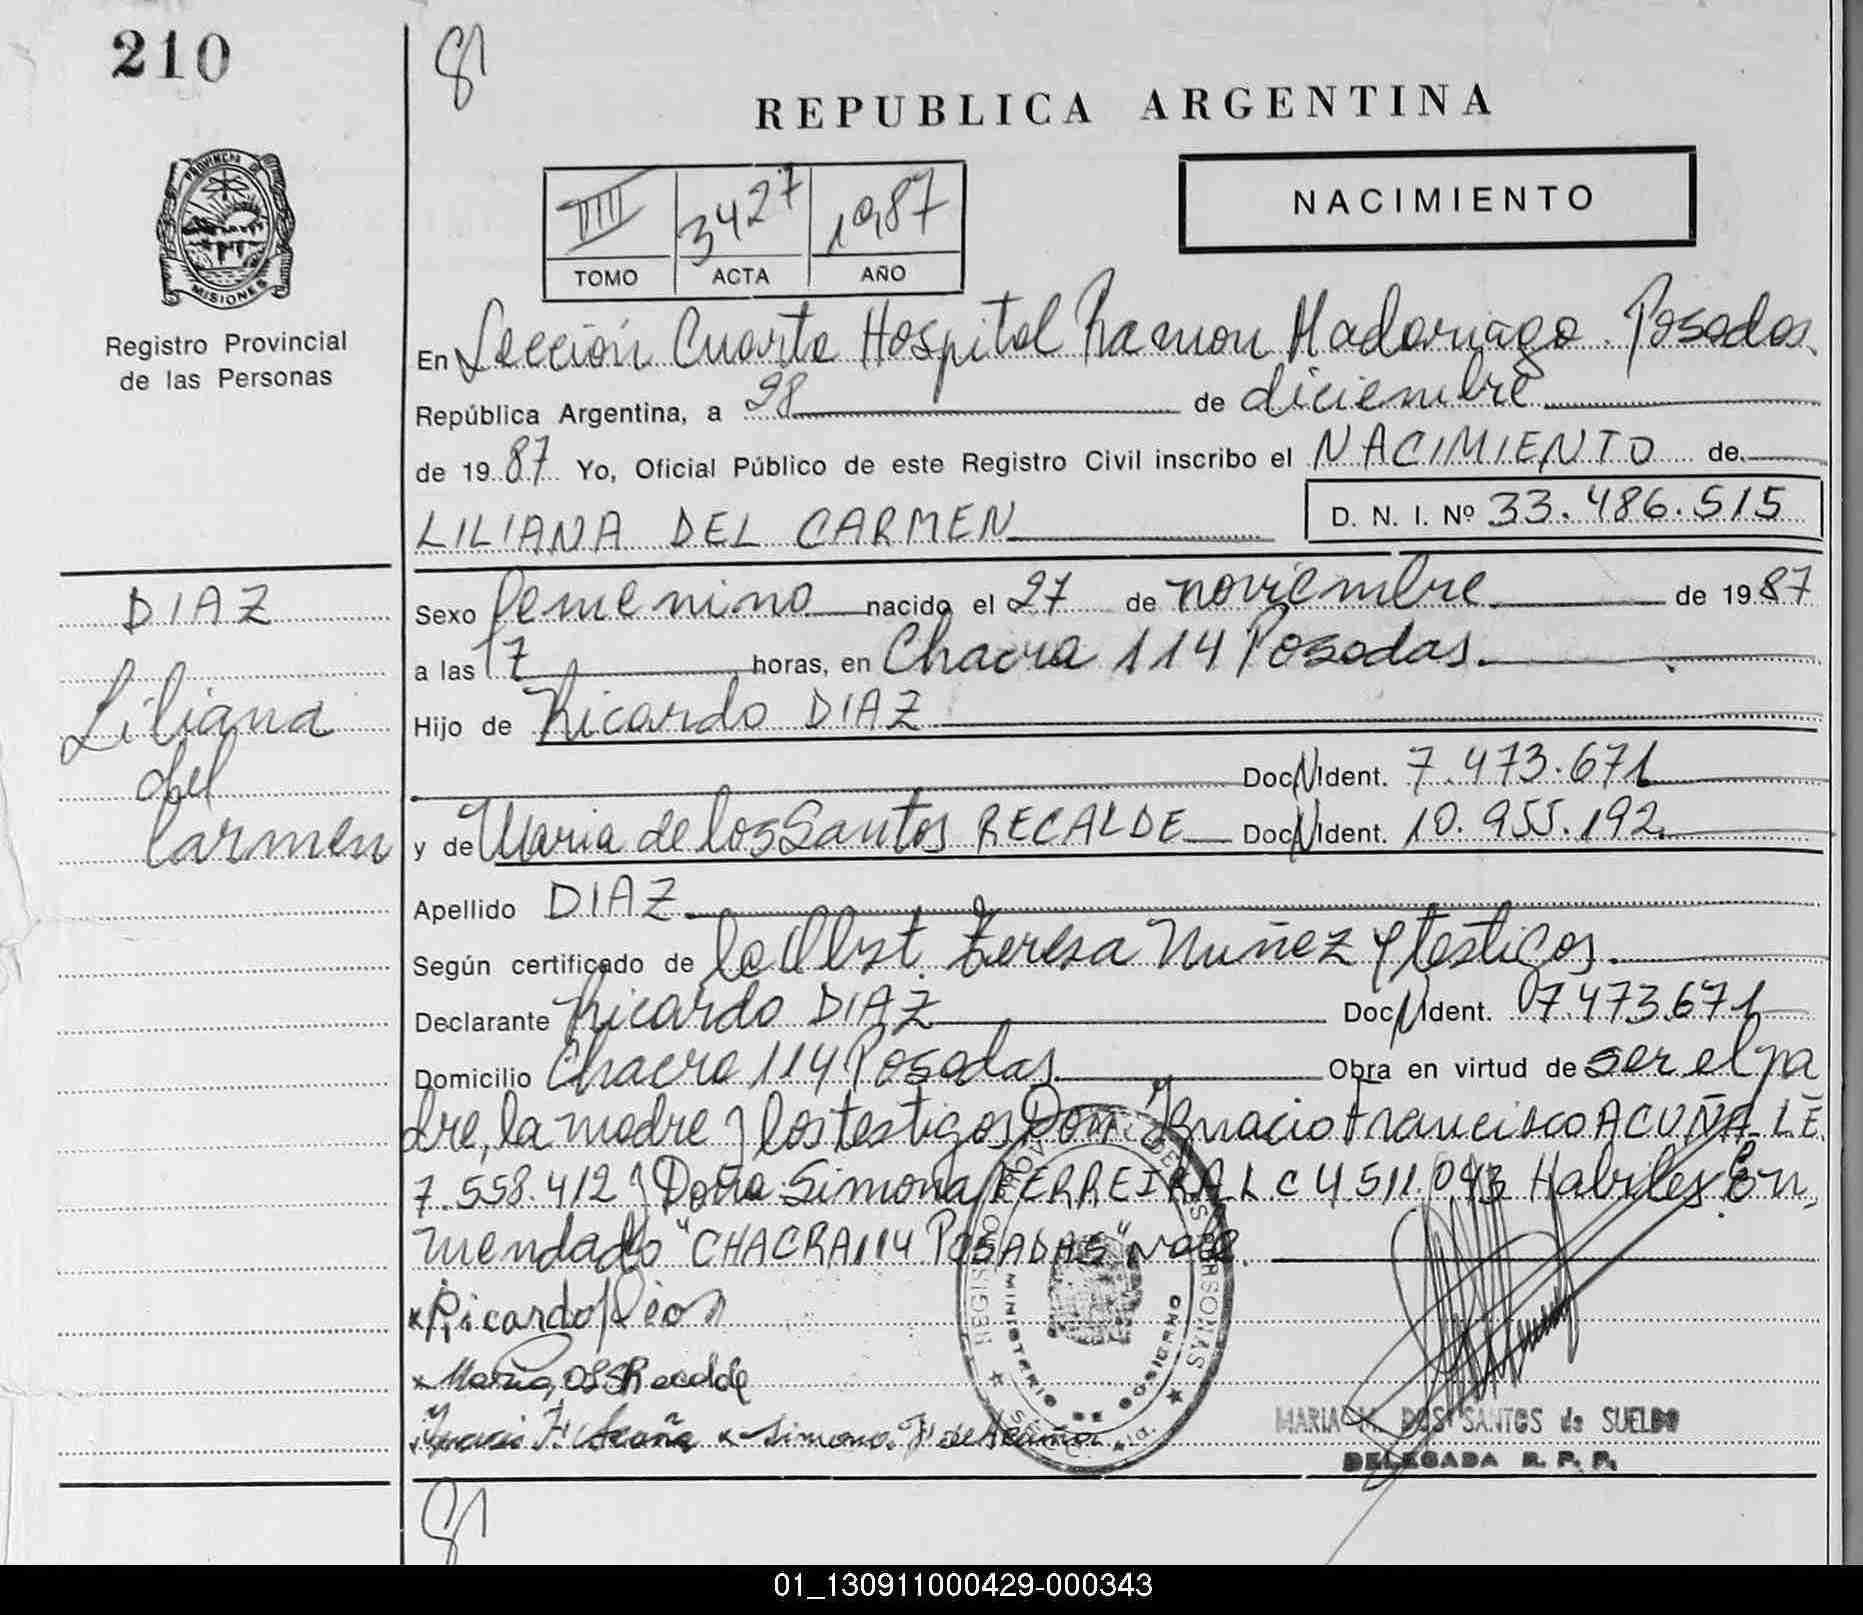 210
REPUBLICA ARGENTINA
PROVINCIA DE
MISIONES
Registro Provincial
de las Personas
VIII 3427 1987
TOMO ACTA AÑO
NACIMIENTO
En Sección Cuarta Hospital Ramon Madariaga. Posadas.
República Argentina, a 28 de diciembre
de 1987 Yo, Oficial Público de este Registro Civil inscribo el NACIMIENTO de
LILIANA DEL CARMEN D. N. I. Nº 33.486.515
DIAZ
Liliana
del
Carmen
Sexo femenino nacido el 27 de noviembre de 1987
a las 17 horas, en Chacra 114 Posadas.
Hijo de Ricardo DIAZ
Doc. N Ident. 7.473.671
y de Maria de los Santos RECALDE Doc. N Ident. 10.955.192.
Apellido DIAZ
Según certificado de la Obst. Teresa Nuñez y testigos.
Declarante Ricardo DIAZ Doc. N Ident. 07.473.671
Domicilio Chacra 114 Posadas Obra en virtud de ser el pa
dre, la madre y los testigos Don Ignacio Francisco ACUÑA LE
7.558.412 y Doña Simona FERREIRA L C 4.511.043 Habiles En
mendado "CHACRA 114 POSADAS" Vale.
x Ricardo Dias
x Maria, D L S Recalde
Ignacio F. Acuña x Simona. F. de Acuña
MINISTERIO DE GOBIERNO
MARIA M. DOS SANTOS de SUELDO
DELEGADA R. P. P.
01_130911000429-000343